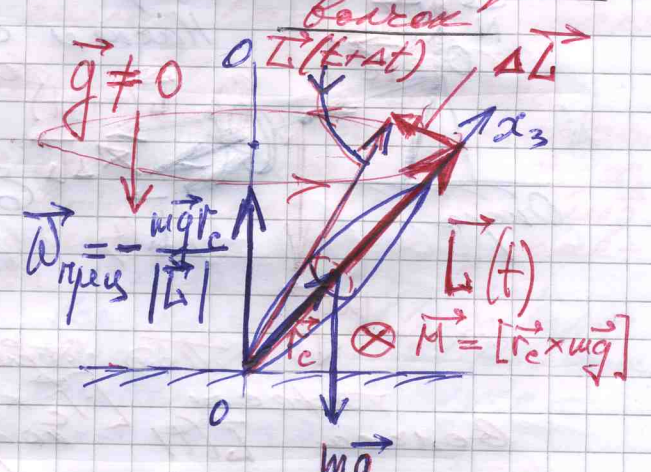 волчок
O
L⃗(t+Δt)
ΔL⃗
g⃗ ≠ 0
x₃
ω⃗прец = - mg⃗r_c / |L⃗|
L⃗(t)
C
r⃗_c
⊗ M⃗ = [r⃗_c × mg⃗]
O
mg⃗